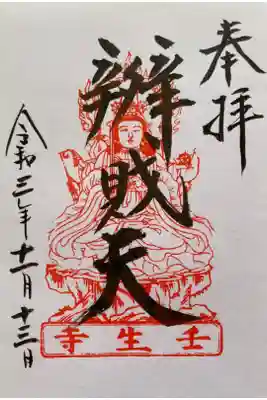 奉拝
辨財天
令和三年十一月十三日
寺生壬